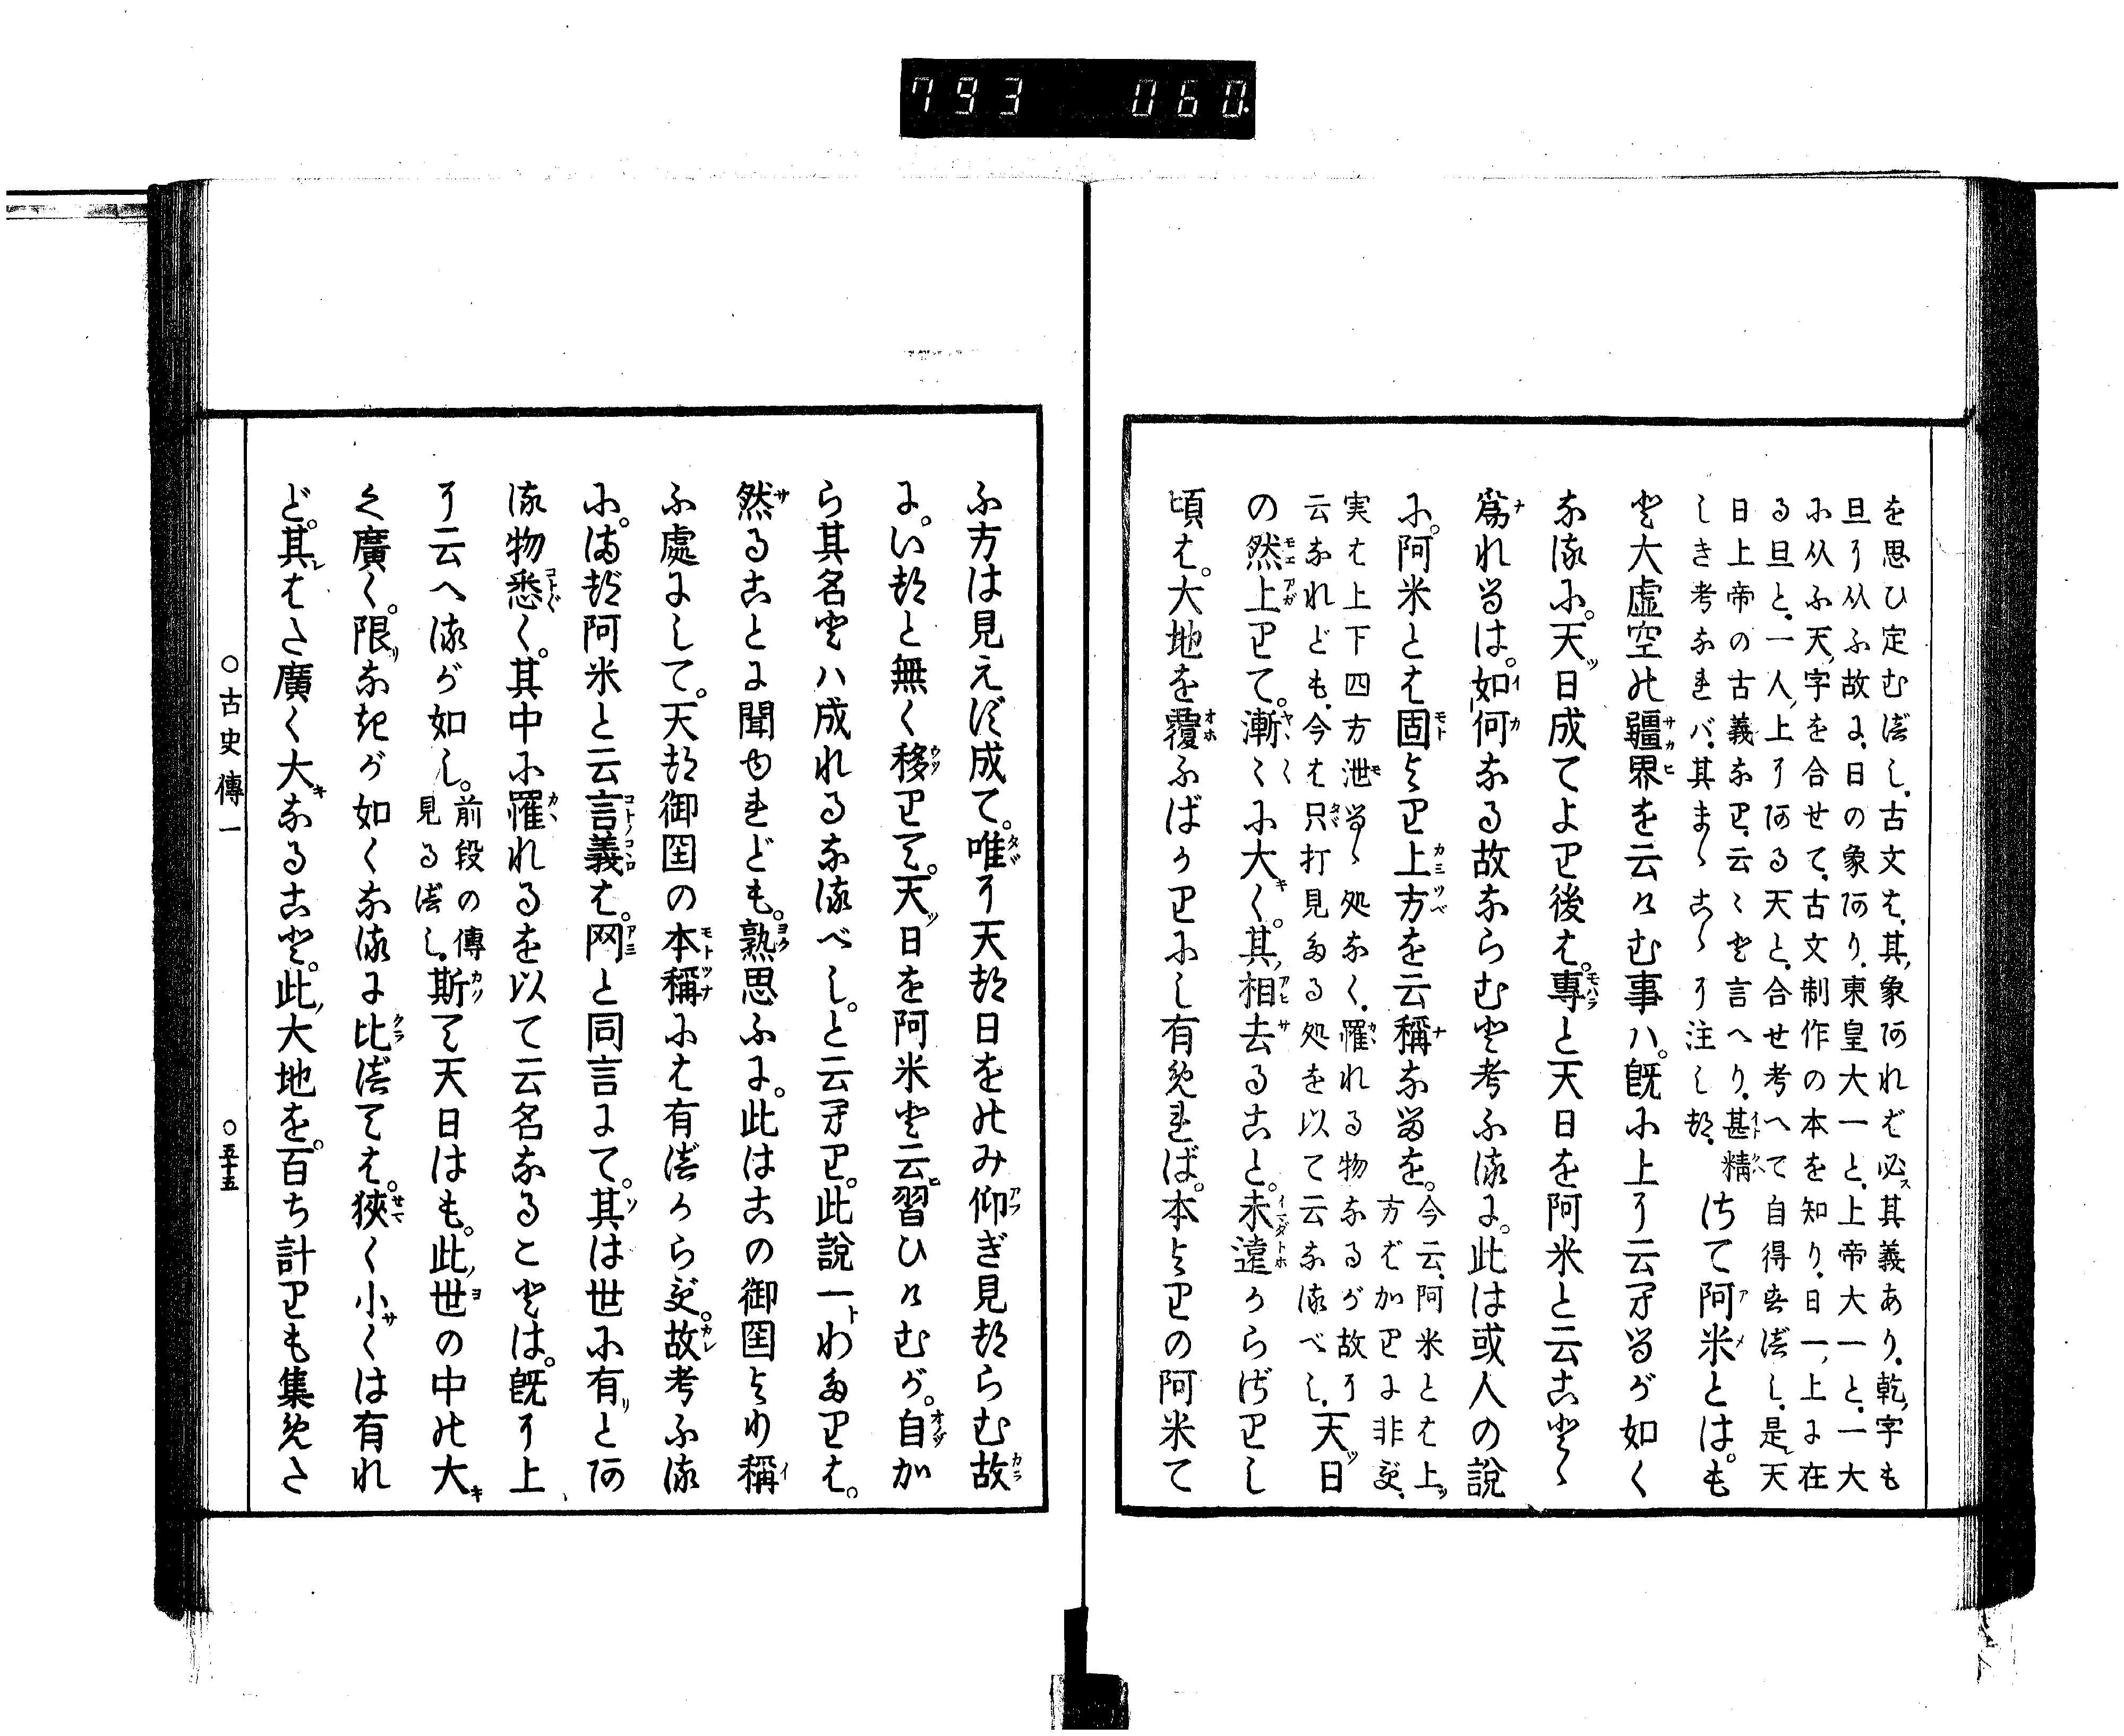 793 060
を思ひ定むべし、古文は、其象あれば必ス其義あり、乾ノ字も
旦に从ふ故に、日の象あり、東皇大一と、上帝大一と、一大
に从ふ天ノ字を合せて、古文制作の本を知り、日一ノ上に在
る旦と、一人ノ上にある天と、合せ考へて自得すべし、是天
日上帝の古義なり、云々と言へり、甚精
しき考なれバ、其まゝこゝに注しつ、
さて阿米とは。も
と大虚空の疆界を云けむ事ハ。既に上に云るが如く
なるに。天ツ日成てより後は。專と天日を阿米と云ことゝ
爲れるは。如何なる故ならむと考ふるに。此は或人の說
に。阿米とは固より上方を云稱なるを。
今云、阿米とは上ツ
方ばかりに非ず、
実は上下四方泄るゝ処なく、罹れる物なるが故に
云なれども、今は只打見たる処を以て云なるべし、
天ツ日
の然上りて。漸々に大キく。其ノ相去ること。未遠からざりし
頃は。大地を覆ふばかりにし有ければ。本よりの阿米て
ふ方は見えず成て。唯に天つ日をのみ仰ぎ見つらむ故
に。いつと無く移りて。天ツ日を阿米と云ヒ習ひけむが。自か
ら其名とハ成れるなるべし。と云り。此說一トわたりは。
然ることに聞ゆれども。熟思ふに。此はこの御国より稱
ふ處にして。天つ御国の本稱には有べからず。故考ふる
に。まづ阿米と云言義は。网と同言にて。其は世に有リとあ
る物悉く。其中に罹れるを以て云名なることは。既に上
に云へるが如し。
前段の傳
見るべし、
斯て天日はも。此ノ世の中の大キ
く廣く。限リなきが如くなるに比べては。狹く小くは有れ
ど。其レはた廣く大キなること。此ノ大地を。百ち計りも集めた
○古史傳一
○五十五